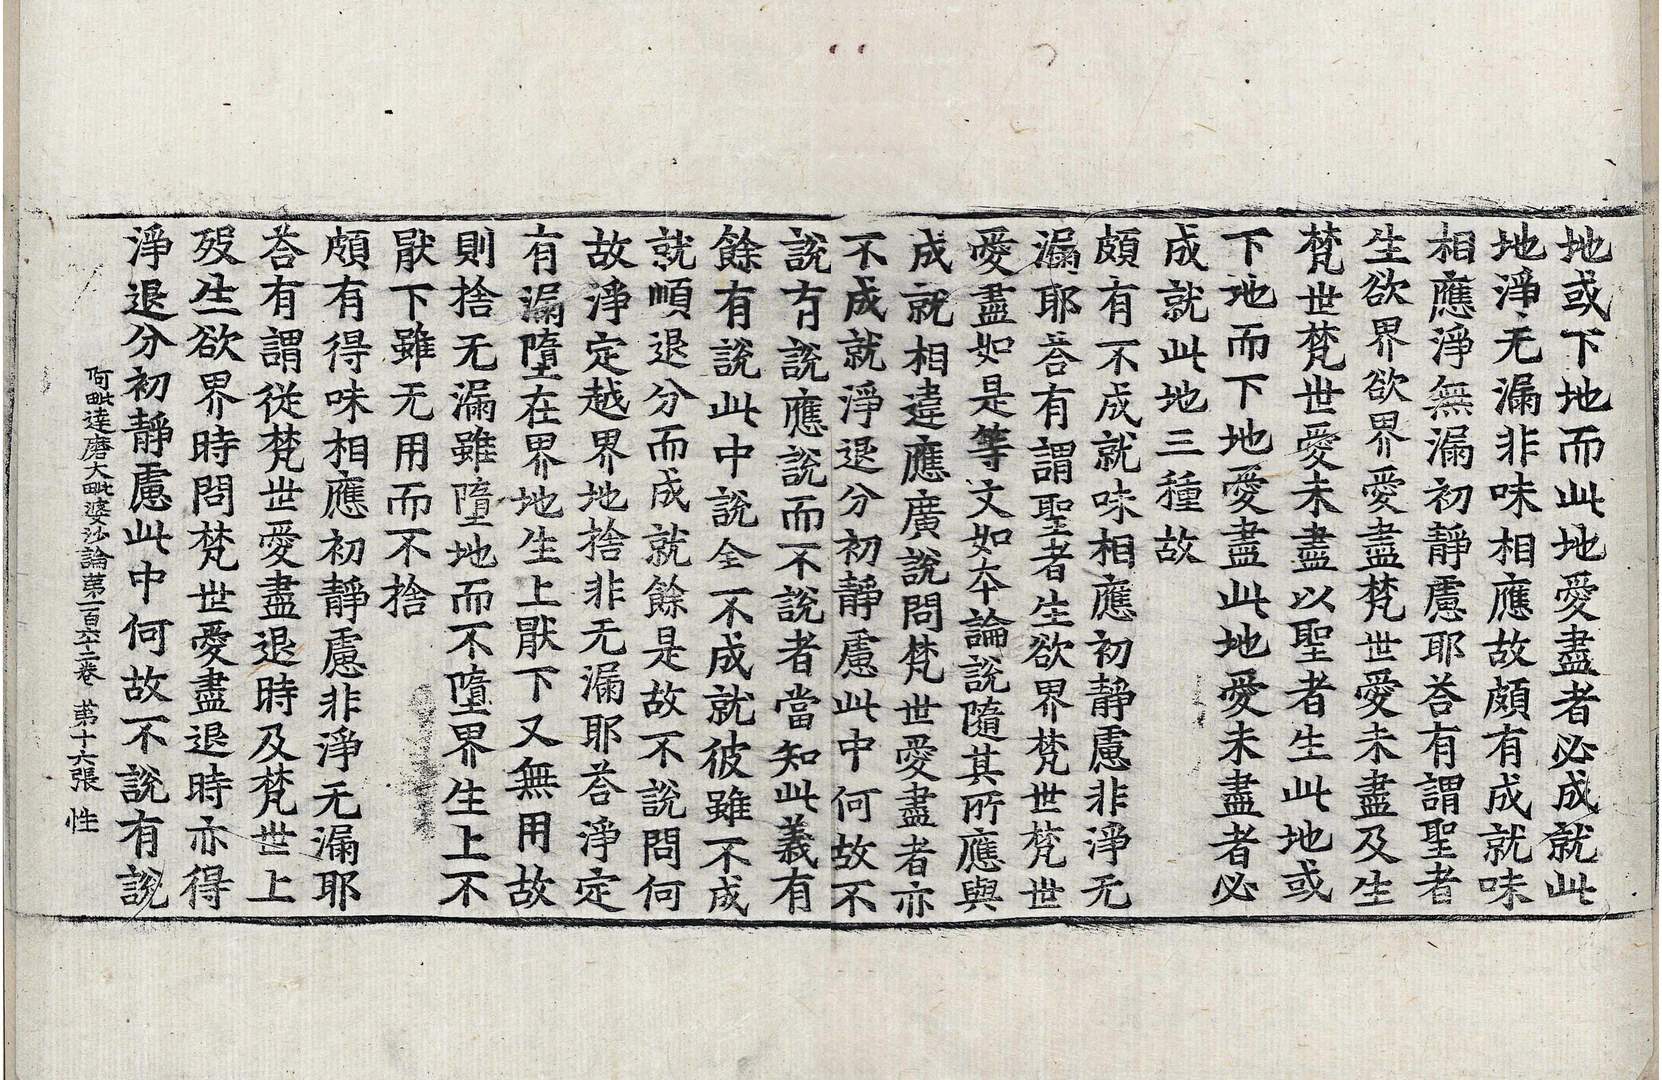 地或下地而此地愛盡者必成就此
地淨无漏非味相應故頗有成就味
相應淨無漏初靜慮耶荅有謂聖者
生欲界欲界愛盡梵世愛未盡及生
梵世梵世愛未盡以聖者生此地或
下地而下地愛盡此地愛未盡者必
成就此地三種故
頗有不成就味相應初靜慮非淨无
漏耶荅有謂聖者生欲界梵世梵世
愛盡如是等文如本論說隨其所應與
成就相違應廣說問梵世愛盡者亦
不成就淨退分初靜慮此中何故不
說有說應說而不說者當知此義有
餘有說此中說全不成就彼雖不成
就順退分而成就餘是故不說問何
故淨定越界地捨非无漏耶荅淨定
有漏墮在界地生上猒下又無用故
則捨无漏雖墮地而不墮界生上不
猒下雖无用而不捨
頗有得味相應初靜慮非淨无漏耶
荅有謂從梵世愛盡退時及梵世上
歿生欲界時問梵世愛盡退時亦得
淨退分初靜慮此中何故不說有說
阿毗達磨大毗婆沙論第一百六十二卷 第十六張 性